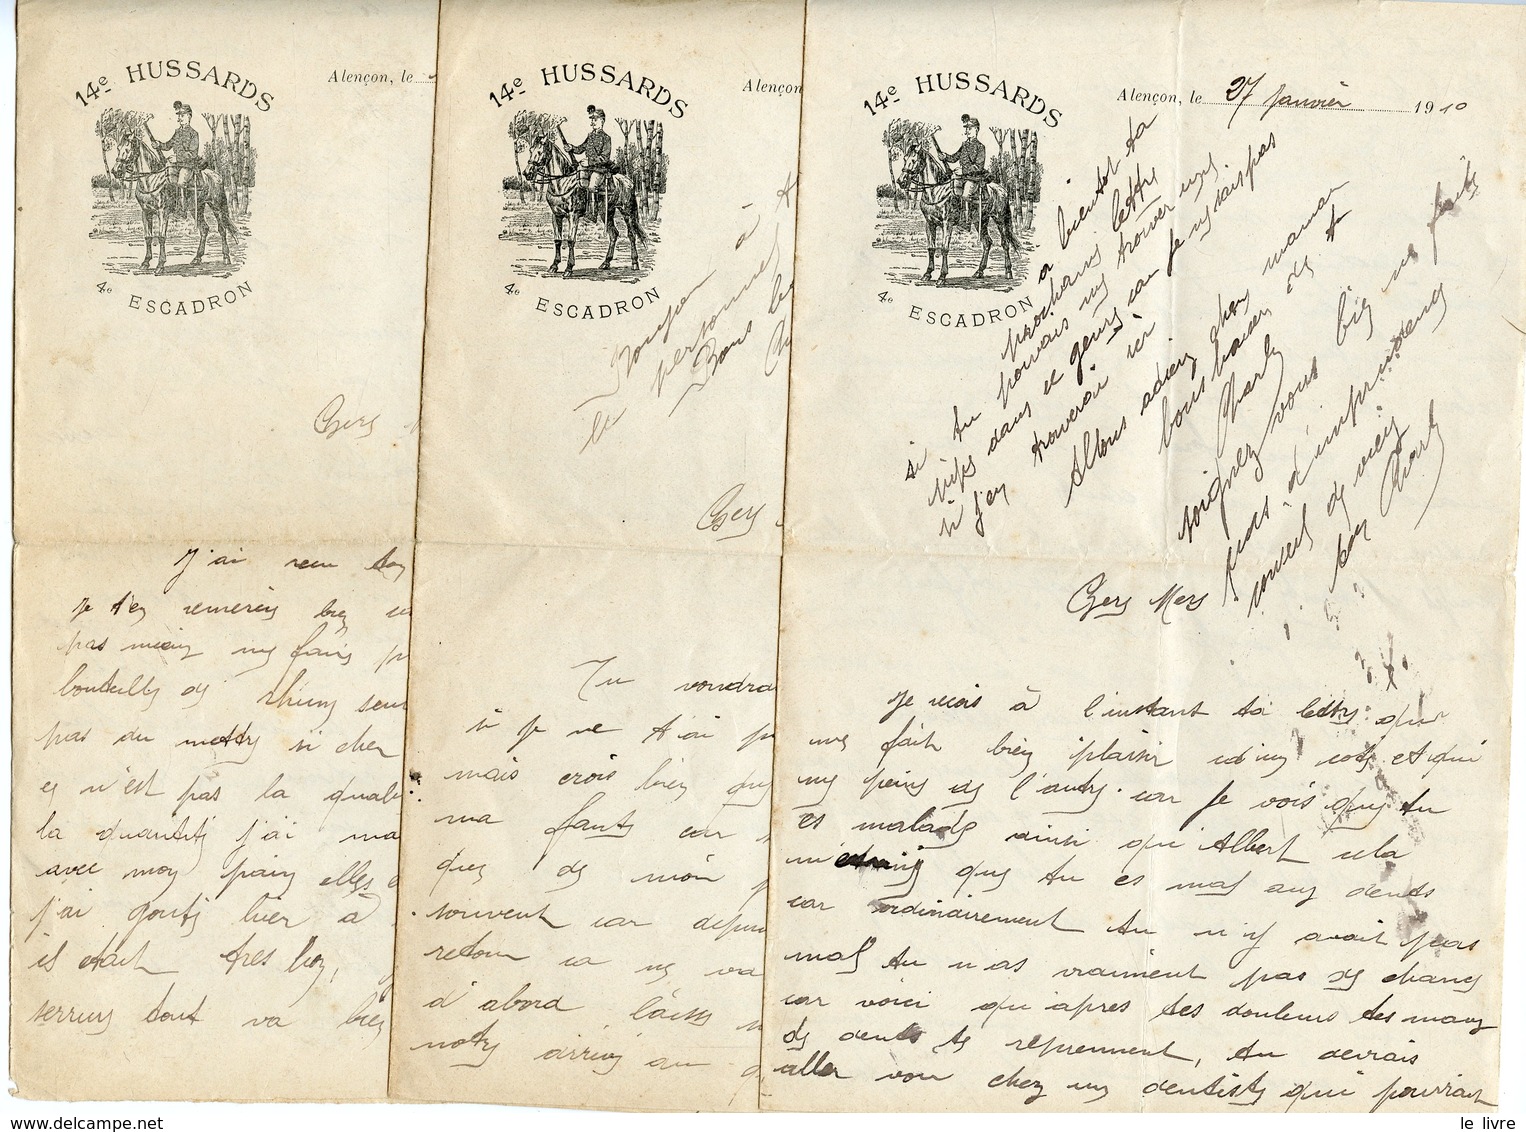 14e HUSSARDS
Alençon, le
4e ESCADRON
Cers
J'ai recu ton
je t'en remercis bien
pas mieux me faire
bouteille de rhum
pas du mettre si cher
ce n'est pas la quali
la quantite j'ai ma
avec mon pain elles
j'ai goute hier à
il etait tres bon,
serrure tout va bien
14e HUSSARDS
Alençon
4e ESCADRON
Bonjour à
personne
Bons
Cers
Tu voudra
si je ne t'ai
mais crois bien que
ma faute car
que de mon
souvent car depuis
retour ca ne va
d'abord laisse
notre arrivée au
14e HUSSARDS
Alençon, le 27 janvier 1910
4e ESCADRON
a bientot ta
prochaine lettre
si tu pouvais me trouver une
pipe dans ce genre car je ne sais pas
si j'en trouverai ici
Allons adieu chere maman
bons baisers de
Charle
soignez vous bien ne faite
pas d'imprudence
conseil de vieux
ton Charle
Cers Mers
Je recois à l'instant ta lettre qui
me fait bien plaisir d'un cote et qui
me peine de l'autre car je vois que tu
es malade ainsi qu'Albert cela
m'etonne que tu es mal aux dents
car ordinairement tu n'y avait pas
mal tu n'as vraiment pas de chance
car voici qu'apres tes douleurs tes maux
de dents te reprennent, tu devrais
aller voir chez un dentiste qui pourrait
le livre